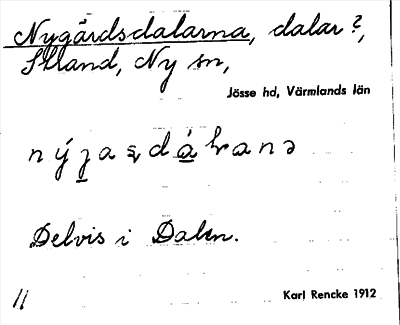 Nygårdsdalarna, dalar?,
Illand, Ny sn,
Jösse hd, Värmlands län
Delvis i Dalen.
11
Karl Rencke 1912